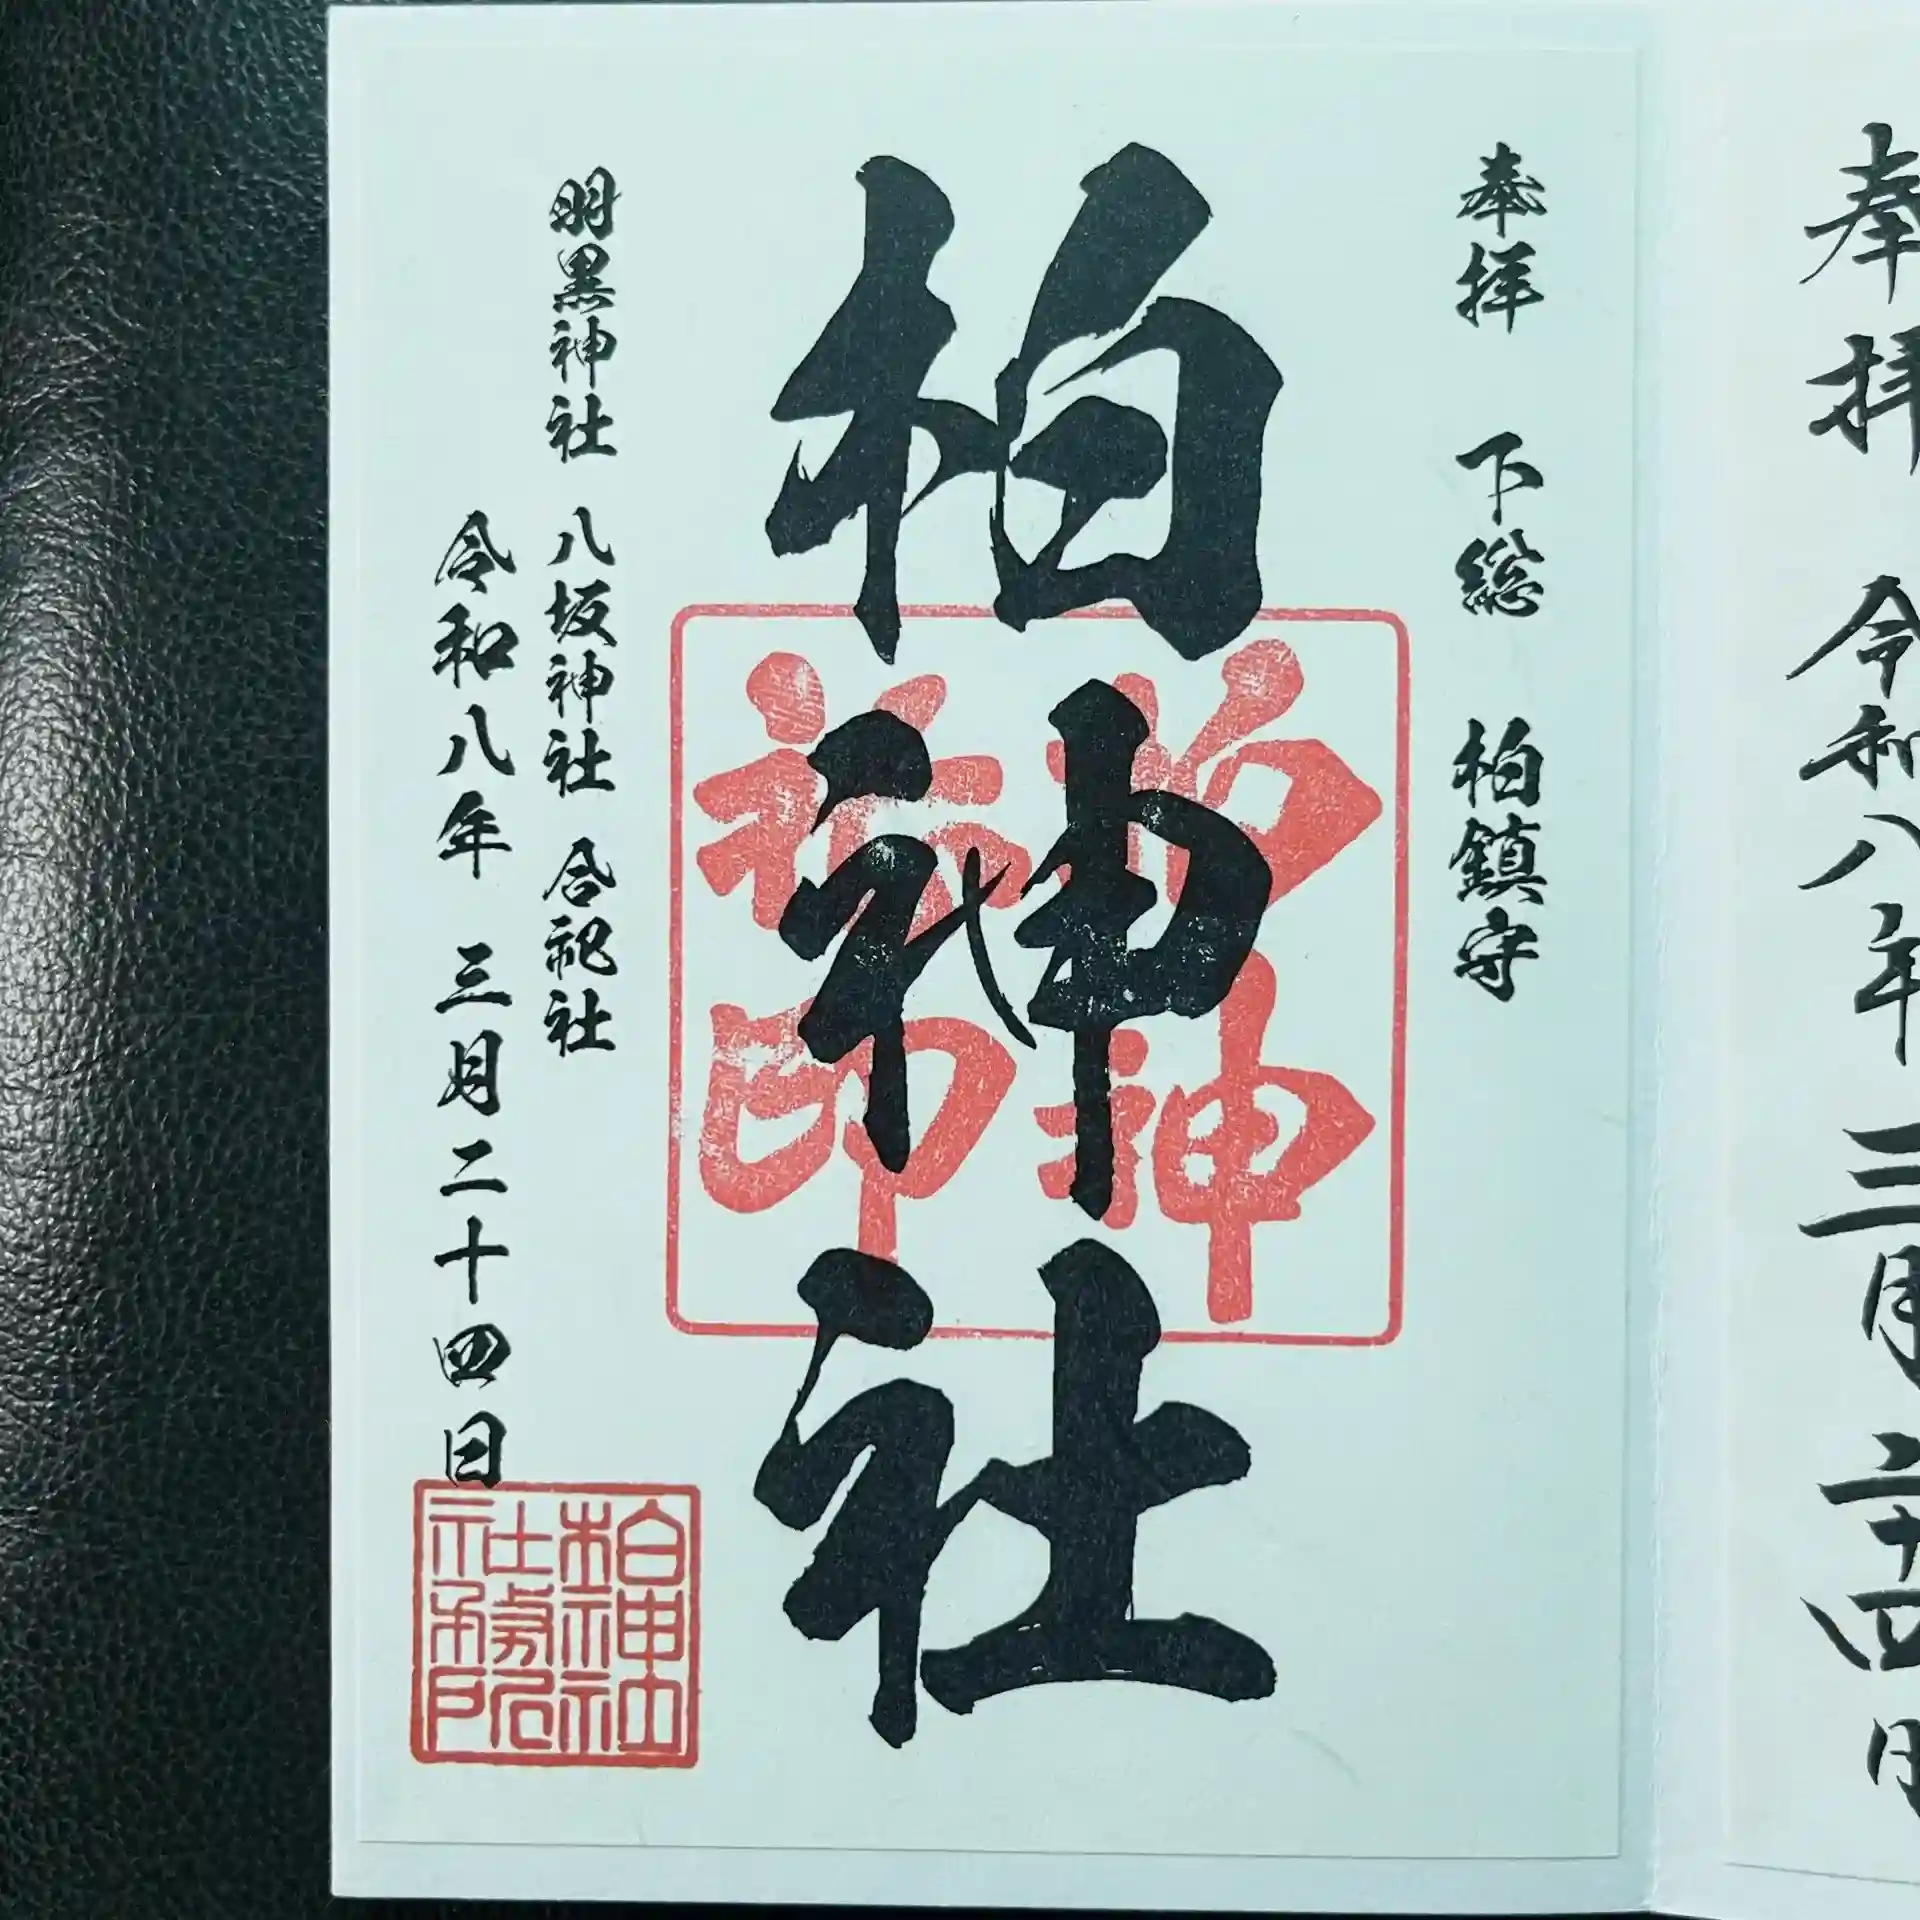 奉拝 令和八年 三月 二十四日
奉拝 下総 柏鎮守
柏神社
柏神社印
明黒神社 八坂神社 合祀社
令和八年 三月二十四日
柏神社
社務所